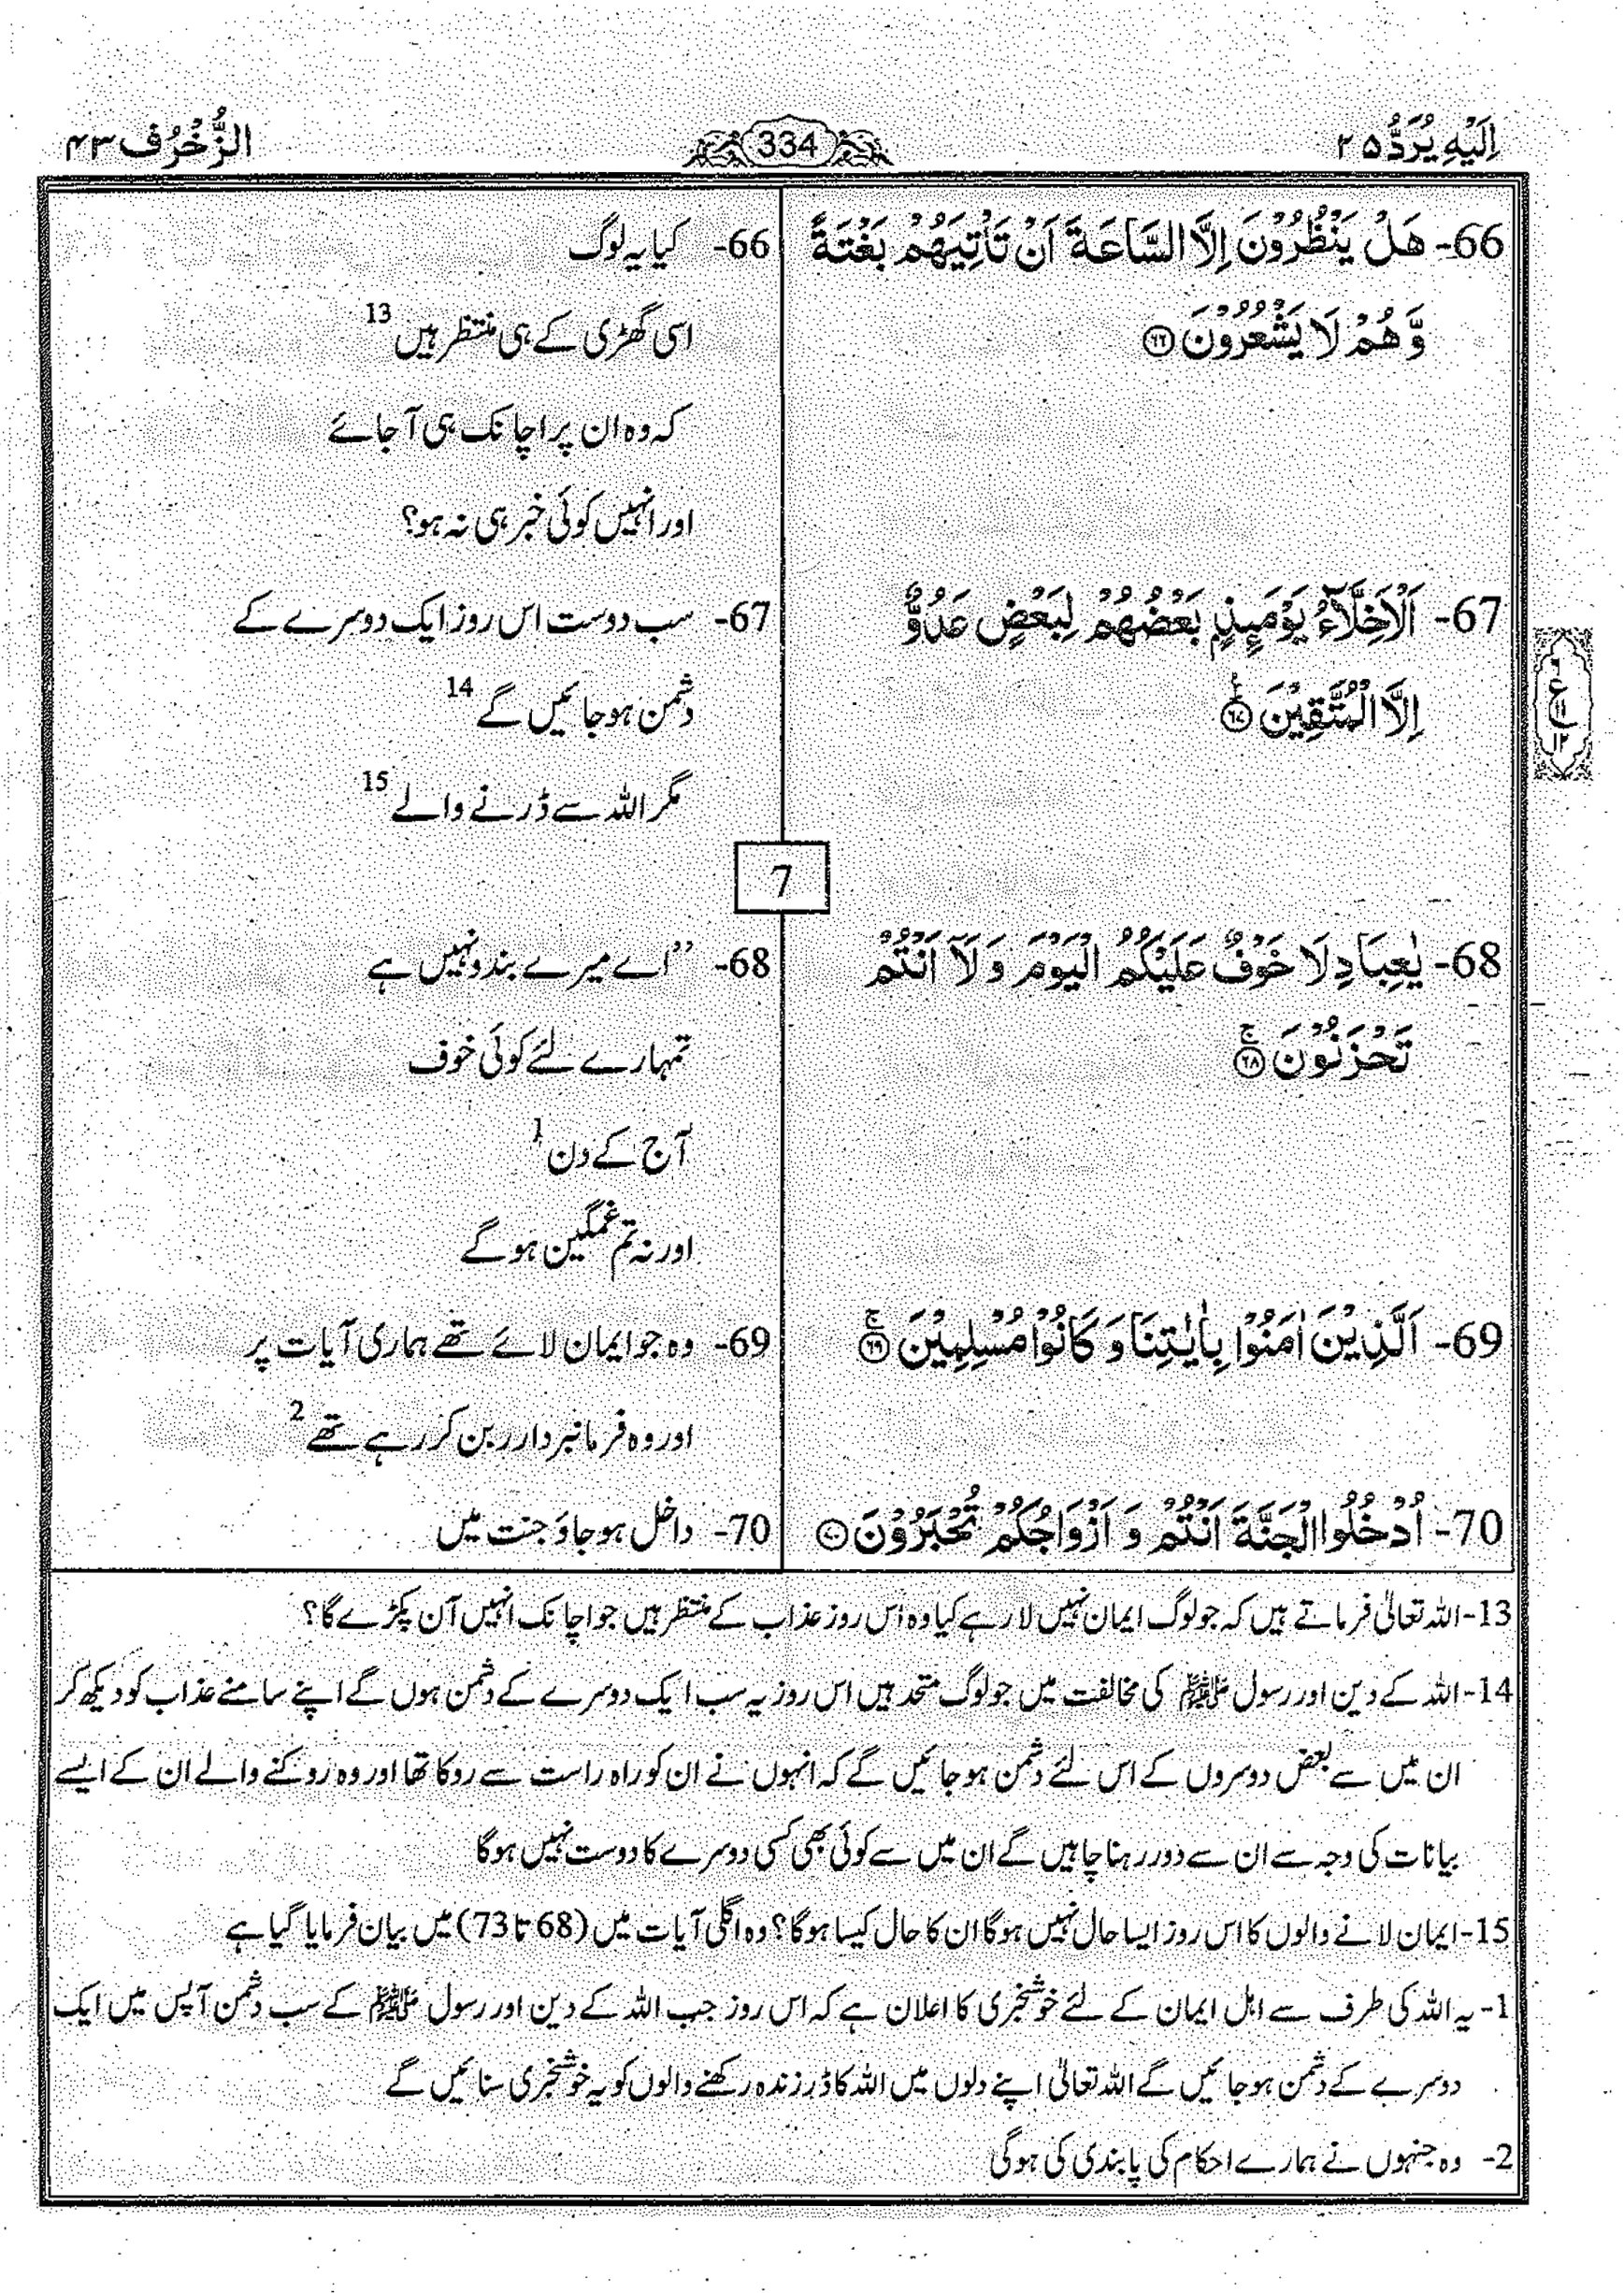 اِلَيْهِ يُرَدُّ ۲۵
334
الزُّخْرُف ۴۳
66- هَلْ يَنْظُرُوْنَ اِلَّا السَّاعَةَ اَنْ تَاْتِيَهُمْ بَغْتَةً
وَّهُمْ لَا يَشْعُرُوْنَ ﴿۶۶﴾
67- اَلْاَخِلَّآءُ يَوْمَىِٕذٍۭ بَعْضُهُمْ لِبَعْضٍ عَدُوٌّ
اِلَّا الْمُتَّقِيْنَ ﴿۶۷﴾
ع
68- يٰعِبَادِ لَا خَوْفٌ عَلَيْكُمُ الْيَوْمَ وَلَآ اَنْتُمْ
تَحْزَنُوْنَ ﴿۶۸﴾ۚ
69- اَلَّذِيْنَ اٰمَنُوْا بِاٰيٰتِنَا وَ كَانُوْا مُسْلِمِيْنَ ﴿۶۹﴾ۚ
70- اُدْخُلُوا الْجَنَّةَ اَنْتُمْ وَ اَزْوَاجُكُمْ تُحْبَرُوْنَ ﴿۷۰﴾
66- کیا یہ لوگ
اسی گھڑی کے ہی منتظر ہیں 13
کہ وہ ان پر اچانک ہی آ جائے
اور انہیں کوئی خبر ہی نہ ہو؟
67- سب دوست اس روز ایک دوسرے کے
دشمن ہو جائیں گے 14
مگر اللہ سے ڈرنے والے 15
7
68- ’’اے میرے بندو نہیں ہے
تمہارے لئے کوئی خوف
آج کے دن 1
اور نہ تم غمگین ہو گے
69- وہ جو ایمان لائے تھے ہماری آیات پر
اور وہ فرمانبردار بن کر رہے تھے 2
70- داخل ہو جاؤ جنت میں
13- اللہ تعالیٰ فرماتے ہیں کہ جو لوگ ایمان نہیں لا رہے کیا وہ اس روز عذاب کے منتظر ہیں جو اچانک انہیں آن پکڑے گا؟
14- اللہ کے دین اور رسول ﷺ کی مخالفت میں جو لوگ متحد ہیں اس روز یہ سب ایک دوسرے کے دشمن ہوں گے اپنے سامنے عذاب کو دیکھ کر
ان میں سے بعض دوسروں کے اس لئے دشمن ہو جائیں گے کہ انہوں نے ان کو راہ راست سے روکا تھا اور وہ روکنے والے ان کے ایسے
بیانات کی وجہ سے ان سے دور رہنا چاہیں گے ان میں سے کوئی بھی کسی دوسرے کا دوست نہیں ہوگا
15- ایمان لانے والوں کا اس روز ایسا حال نہیں ہوگا ان کا حال کیسا ہوگا؟ وہ اگلی آیات میں (68 تا 73) میں بیان فرمایا گیا ہے
1- یہ اللہ کی طرف سے اہل ایمان کے لئے خوشخبری کا اعلان ہے کہ اس روز جب اللہ کے دین اور رسول ﷺ کے سب دشمن آپس میں ایک
دوسرے کے دشمن ہو جائیں گے اللہ تعالیٰ اپنے دلوں میں اللہ کا ڈر زندہ رکھنے والوں کو یہ خوشخبری سنائیں گے
2- وہ جنہوں نے ہمارے احکام کی پابندی کی ہوگی